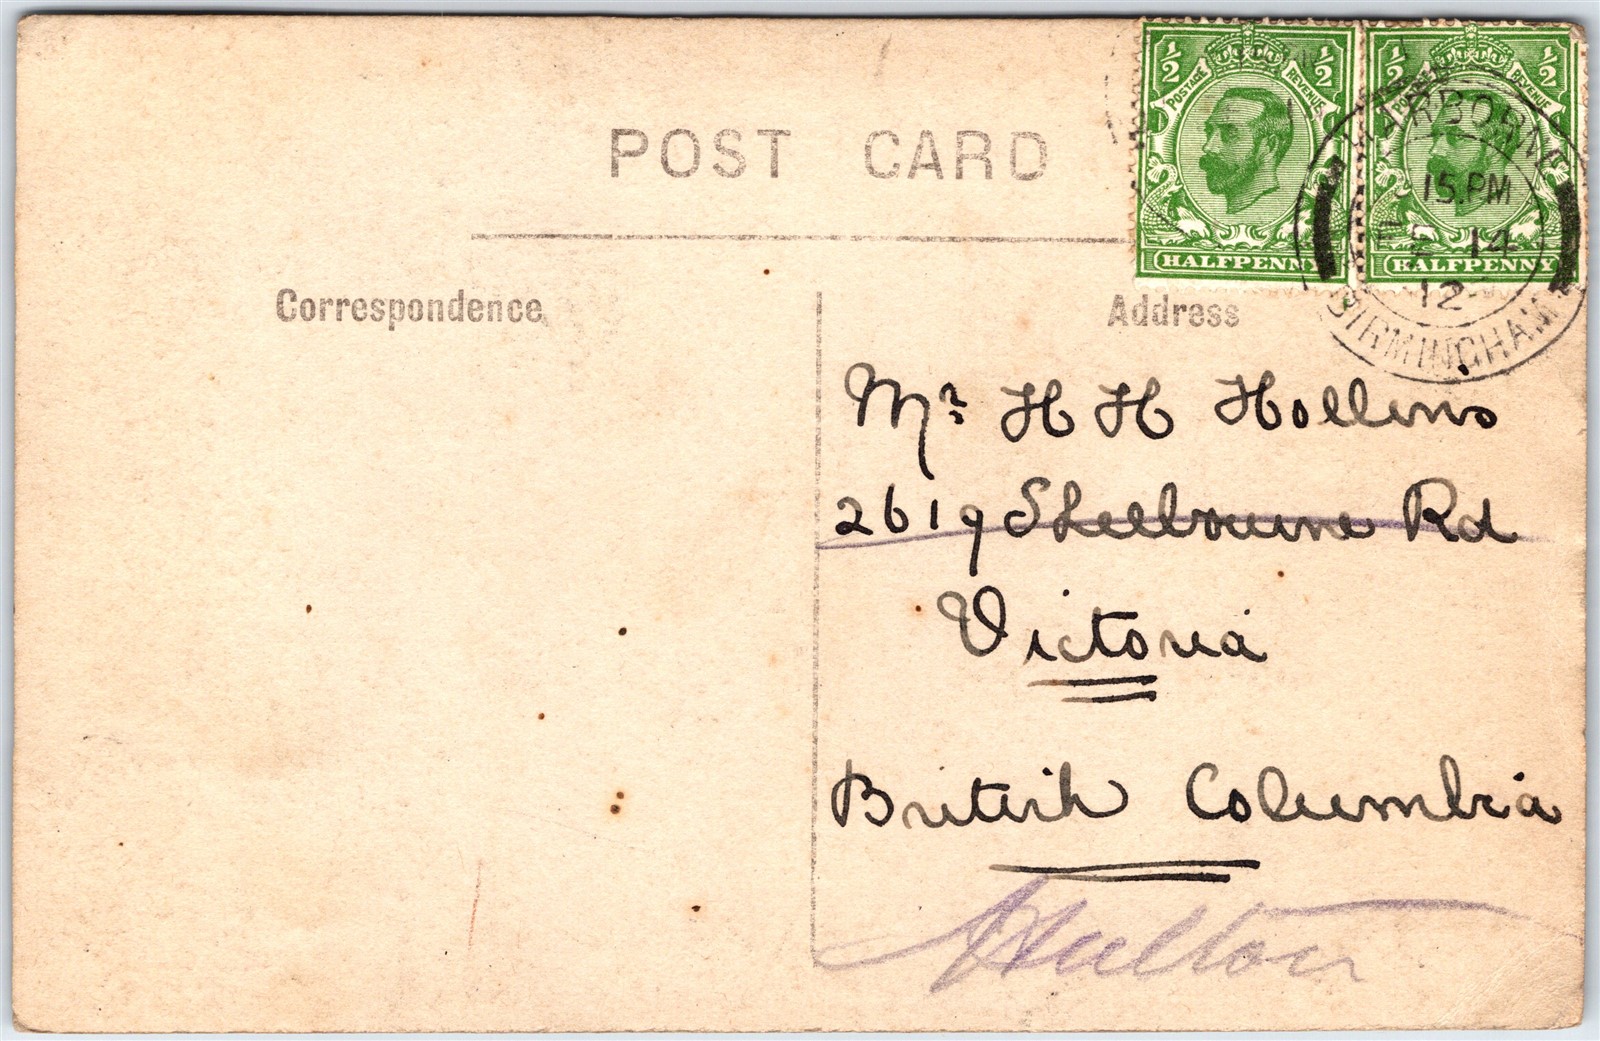 POST CARD
½ ½
POSTAGE REVENUE
HALFPENNY
½ ½
REVENUE
HALFPENNY
HARBORNE
15.PM
14
12
BIRMINGHAM
Correspondence
Address
Mr H H Hollins
2619 Shelbourne Rd
Victoria
British Columbia